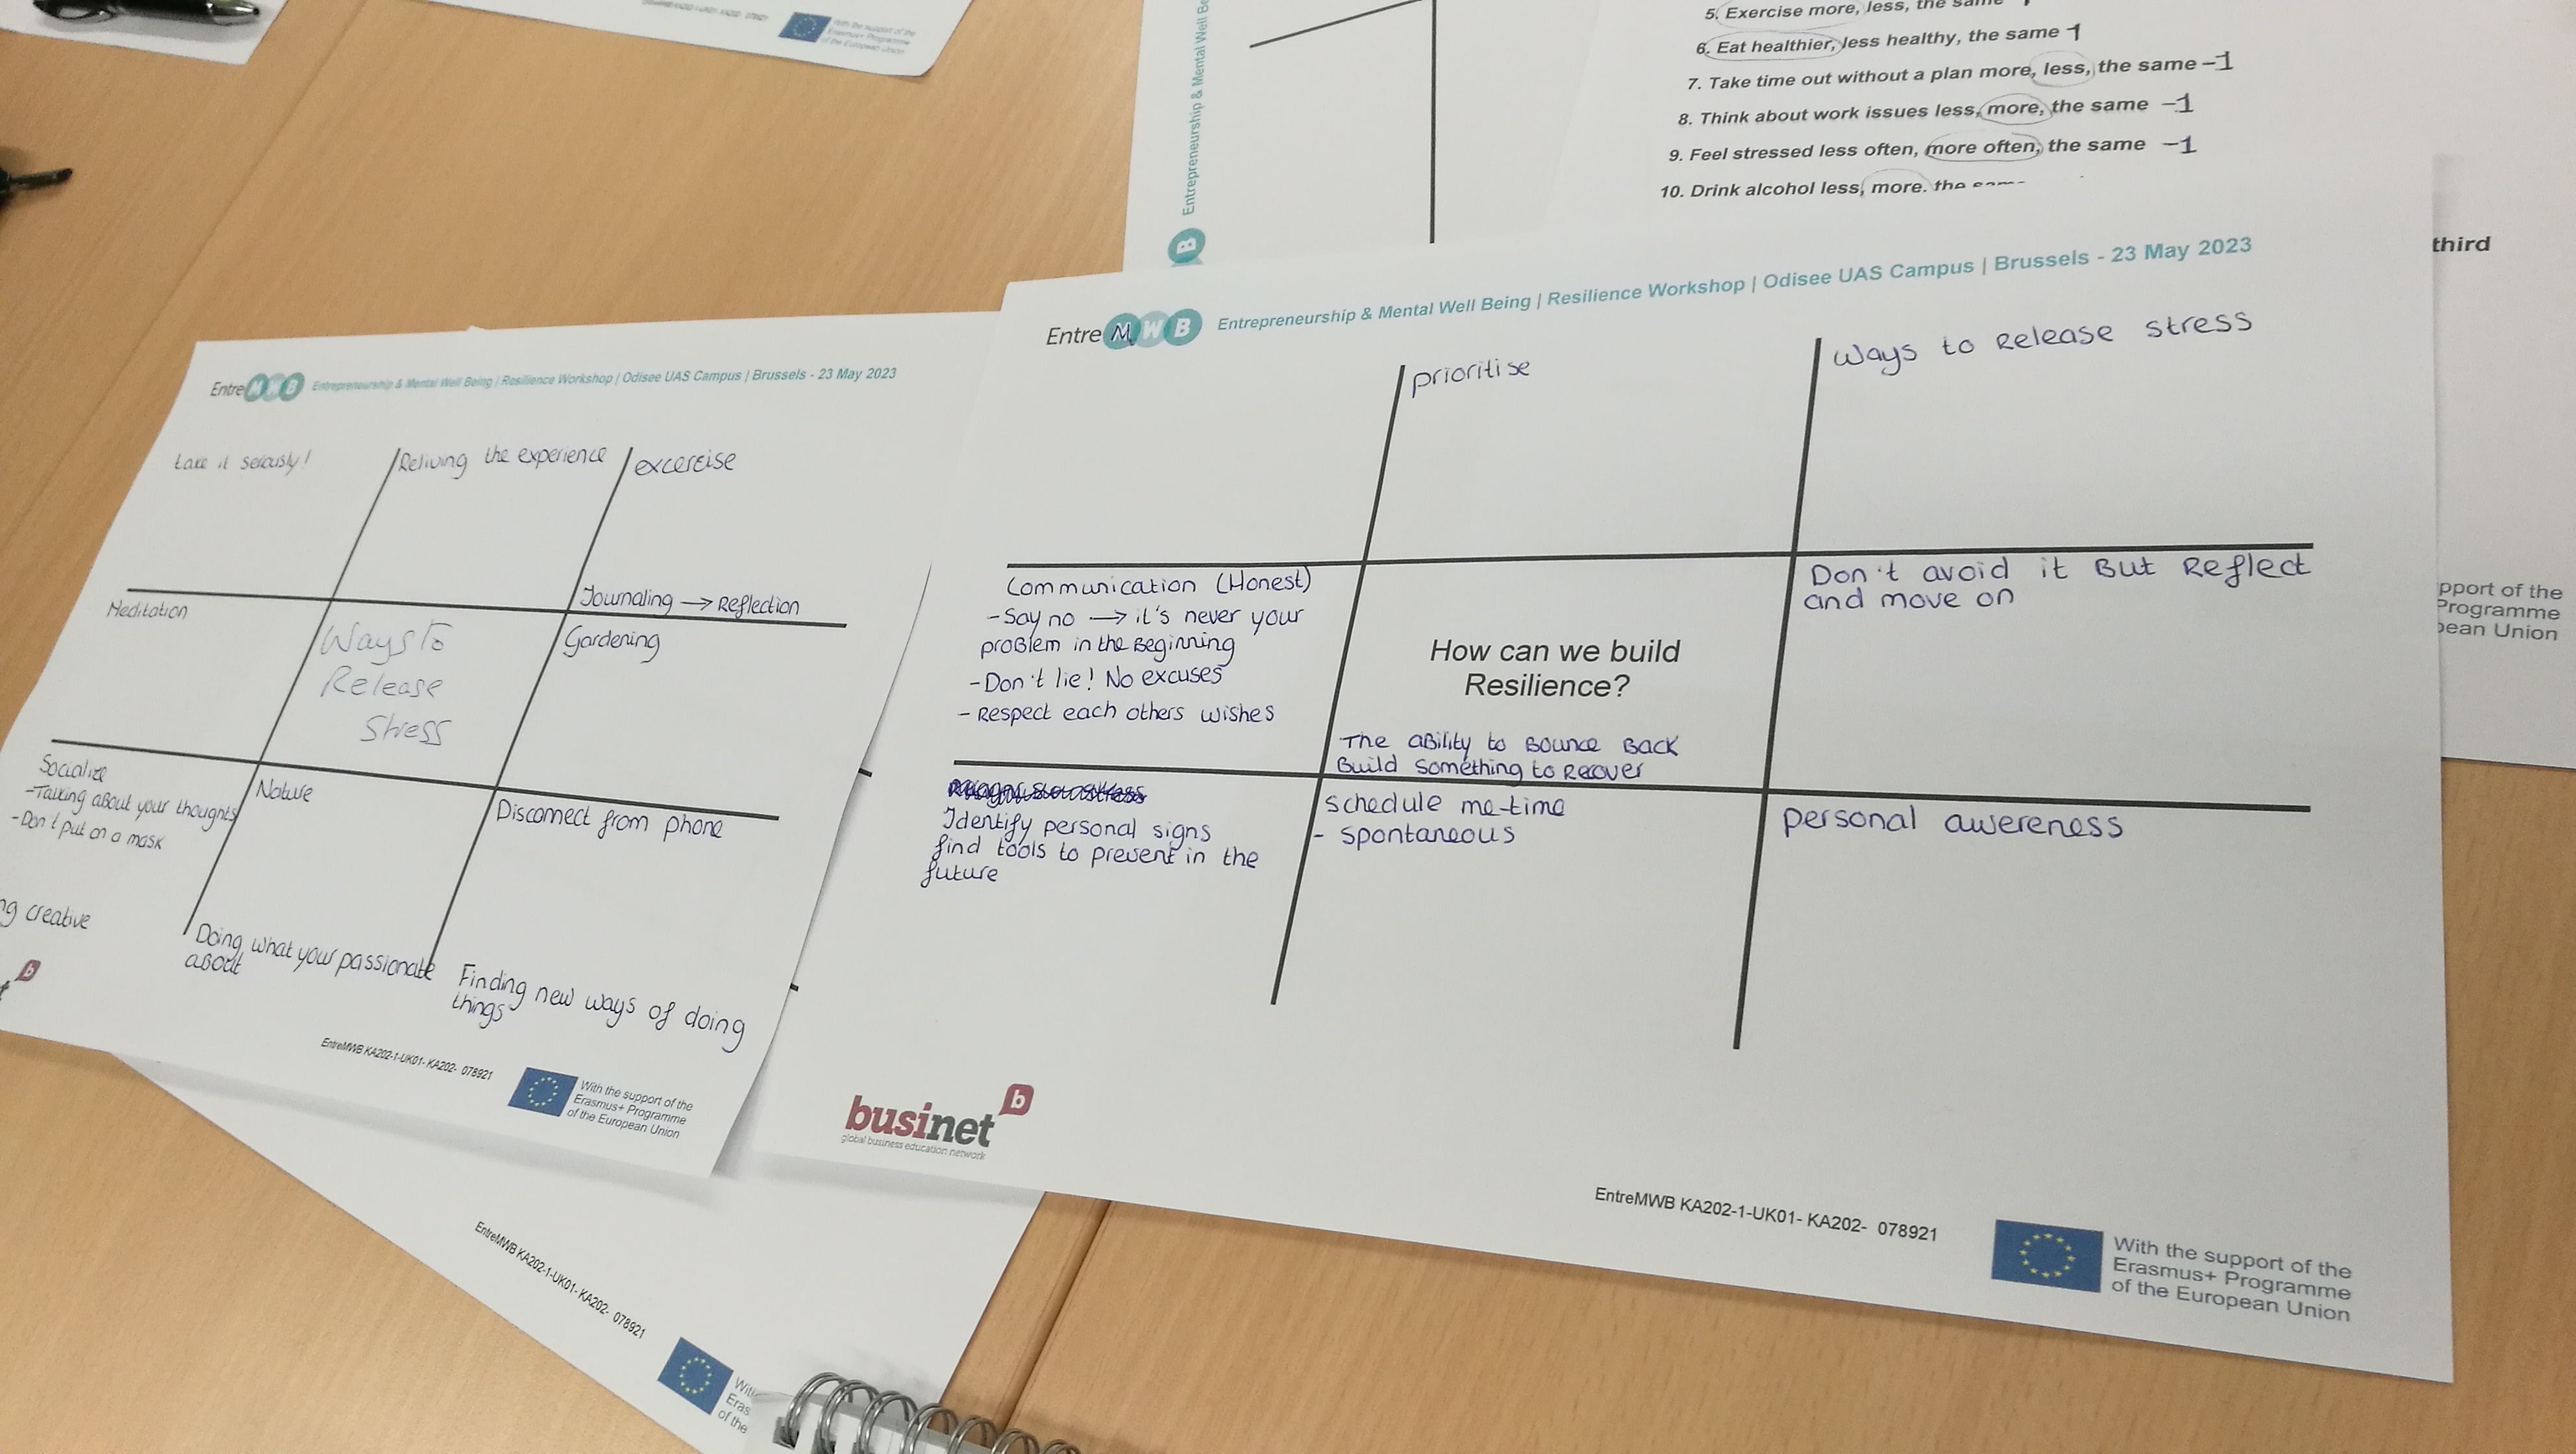 With the support of the
Erasmus+ Programme
of the European Union
Entrepreneurship & Mental Well Be
B
5. Exercise more, less, the same
6. Eat healthier, less healthy, the same 1
7. Take time out without a plan more, less, the same -1
8. Think about work issues less, more, the same -1
9. Feel stressed less often, more often, the same -1
10. Drink alcohol less, more, the same
third
pport of the
Programme
pean Union
EntreMWB Entrepreneurship & Mental Well Being | Resilience Workshop | Odisee UAS Campus | Brussels - 23 May 2023
take it seriously!
Reliving the experience
excercise
Journaling → Reflection
Meditation
Ways to
Release
Stress
Gardening
Socialize
-Talking about your thoughts
-Don't put on a mask
Nature
Disconnect from phone
ng creative
Doing what your passionate
about
Finding new ways of doing
things
b
EntreMWB KA202-1-UK01- KA202- 078921
With the support of the
Erasmus+ Programme
of the European Union
EntreMWB Entrepreneurship & Mental Well Being | Resilience Workshop | Odisee UAS Campus | Brussels - 23 May 2023
prioritise
ways to Release stress
Communication (Honest)
- Say no → it's never your
problem in the Beginning
- Don't lie! No excuses
- Respect each others wishes
How can we build
Resilience?
The ability to Bounce Back
Build something to Recover
Don't avoid it But Reflect
and move on
Identify personal signs
find tools to prevent in the
future
schedule me-time
- spontaneous
personal awereness
businet b
global business education network
EntreMWB KA202-1-UK01- KA202- 078921
With the support of the
Erasmus+ Programme
of the European Union
EntreMWB KA202-1-UK01- KA202- 078921
With
Eras
of the